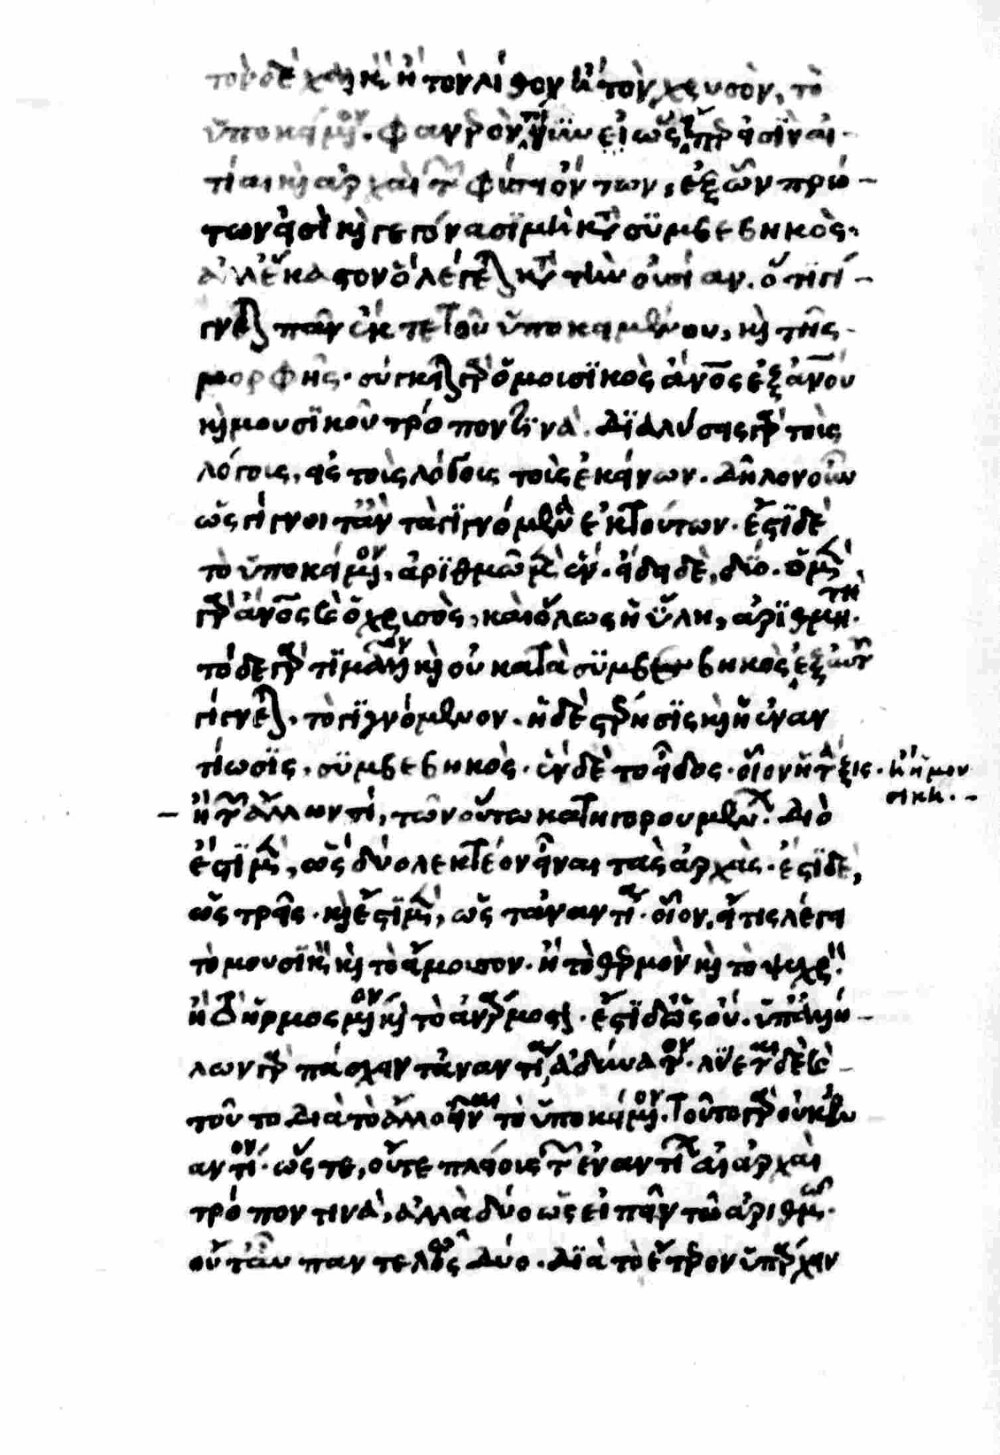 τὸν δὲ χαλκὸν ἢ τὸν λίθον ἢ τὸν χρυσὸν, τὸ
ὑποκείμενον. φανερὸν οὖν ὡς εἴπερ εἰσὶν αἰ-
τίαι καὶ ἀρχαὶ τῶν φύσει ὄντων, ἐξ ὧν πρώ-
των εἰσὶ καὶ γεγόνασι μὴ κατὰ συμβεβηκὸς.
ἀλλ' ἕκαστον ὃ λέγεται κατὰ τὴν οὐσίαν. ὅτι γί-
γνεται πᾶν ἐκ τε τοῦ ὑποκειμένου, καὶ τῆς
μορφῆς. σύγκειται γὰρ ὁ μουσικὸς ἄνθρωπος ἐξ ἀνθρώπου
καὶ μουσικοῦ τρόπον τινά. διαλύσεις γὰρ τοὺς
λόγους, εἰς τοὺς λόγους τοὺς ἐκείνων. δῆλον οὖν
ὡς γίγνοιτ' ἂν τὰ γιγνόμενα ἐκ τούτων. ἔστι δὲ
τὸ ὑποκείμενον, ἀριθμῶ μὲν ἕν. εἴδει δὲ, δύο. ὁ μὲν
γὰρ ἄνθρωπος καὶ ὁ χρυσὸς, καὶ ὅλως ἡ ὕλη, ἀριθμητή.
τόδε γάρ τι μᾶλλον καὶ οὐ κατὰ συμβεβηκὸς ἐξ αὐτοῦ
γίγνεται. τὸ γιγνόμενον. ἡ δὲ στέρησις καὶ ἡ ἐναν
τίωσις, συμβεβηκὸς. ἓν δὲ τὸ εἶδος. οἷον ἡ τάξις. ἢ ἡ μου
σική.-
ἢ τῶν ἄλλων τί, τῶν οὕτω κατηγορουμένων. διὸ
ἔστι μὲν, ὡς δύο λεκτέον εἶναι τὰς ἀρχὰς. ἔστι δὲ,
ὡς τρεῖς. καὶ ἔστι μὲν, ὡς τἀναντία. οἷον, εἴ τις λέγει
τὸ μουσικὸν καὶ τὸ ἄμουσον. ἢ τὸ θερμὸν καὶ τὸ ψυχρόν.
ἢ τὸ ἡρμοσμένον καὶ τὸ ἀνάρμοστον. ἔστι δ' ὡς οὔ. ὑπ' ἀλλή-
λων γὰρ πάσχειν τἀναντία, ἀδύνατον. λύεται δὲ καὶ
τοῦτο διὰ τὸ ἄλλο εἶναι τὸ ὑποκείμενον. τοῦτο γὰρ οὐκ ἐν
αντίον. ὥστε, οὔτε πλείους τῶν ἐναντίων αἱ ἀρχαὶ
τρόπον τινὰ, ἀλλὰ δύο ὡς εἰπεῖν τῶ ἀριθμῶ.
οὔτ' ἂν παντελῶς δύο. διὰ τὸ ἕτερον ὑπάρχειν